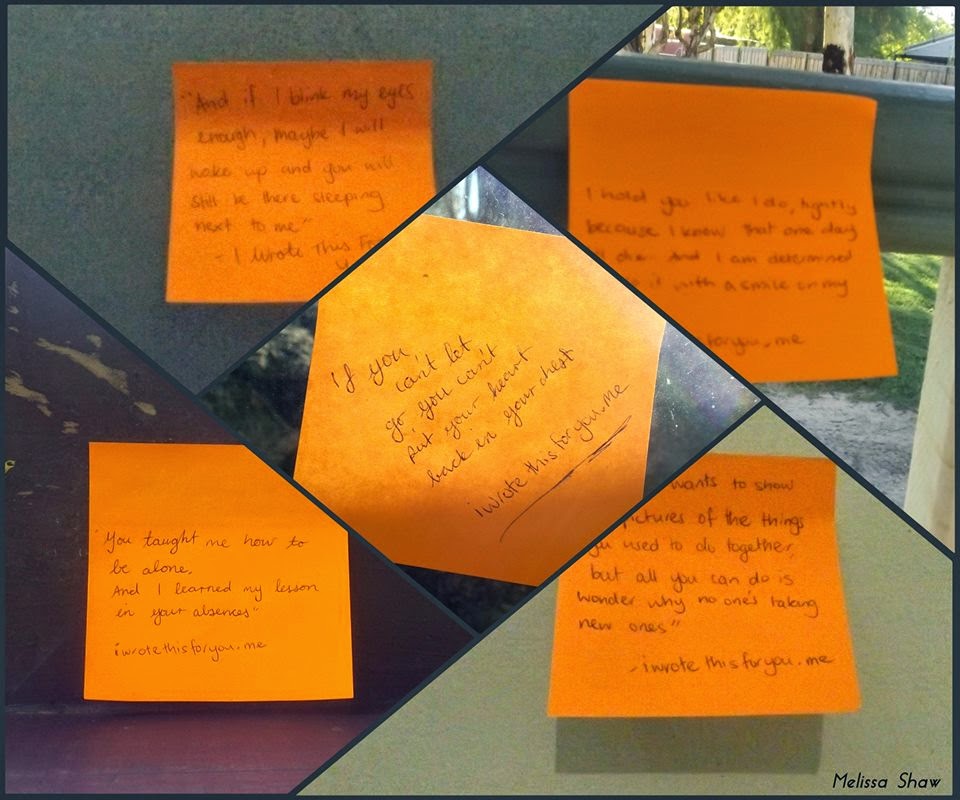 "And if I blink my eyes
enough, maybe I will
wake up and you will
still be there sleeping
next to me"
- I Wrote This
I hold you like I do, tightly
because I know that one day
I die. And I am determined
it with a smile on my
foryou.me
if you
can't let
go, you can't
put your heart
back in your chest
iwrotethisforyou.me
"You taught me how to
be alone.
And I learned my lesson
in your absences"
iwrotethisforyou.me
wants to show
pictures of the things
you used to do together,
but all you can do is
wonder why no one's taking
new ones"
-iwrotethisforyou.me
Melissa Shaw